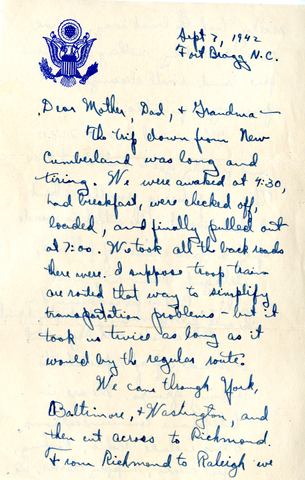 Sept 7, 1942
Fort Bragg N.C.
Dear Mother, Dad, & Grandma —
The trip down from New
Cumberland was long and
tiring. We were awaked at 4:30,
had breakfast, were checked off,
loaded, and finally pulled out
at 7:00. We took all the back roads
there were. I suppose troop trains
are routed that way to simplify
transportation problems - but it
took us twice as long as it
would by the regular route.
We came through York,
Baltimore, & Washington, and
then cut across to Richmond.
From Richmond to Raleigh we